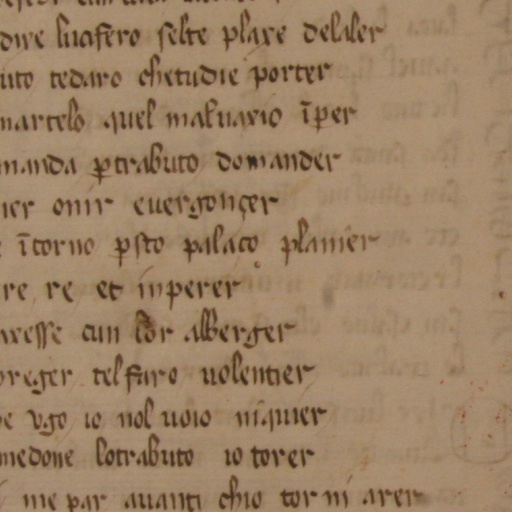 dire lucifero selte plaxe delaler
uto tedaro chetudie porter
martelo quel maluaxio īper
manda ꝑtrabuto domander
ier onir euergonçer
ītorno ꝑsto palaço planier
re re et inperer
uesse cun lor alberger
preger tel faro uolentier
ugo io nol uoio niquier
medone lotrabuto io torer
me par auanti chio tor ni arer